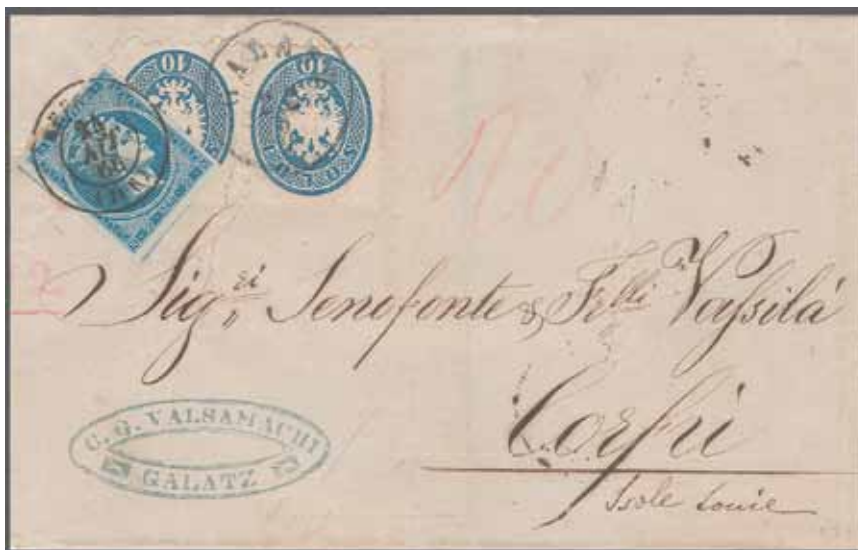 10
10
SOLDI
GALATZ
Sig.ri Senofonte & Flli Vassilá
Corfú
Isole Ionie
C. G. VALSAMACHI
GALATZ